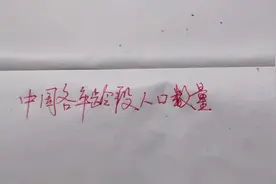 中国各年龄段人口数量